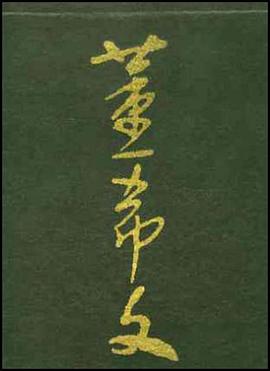 董希文